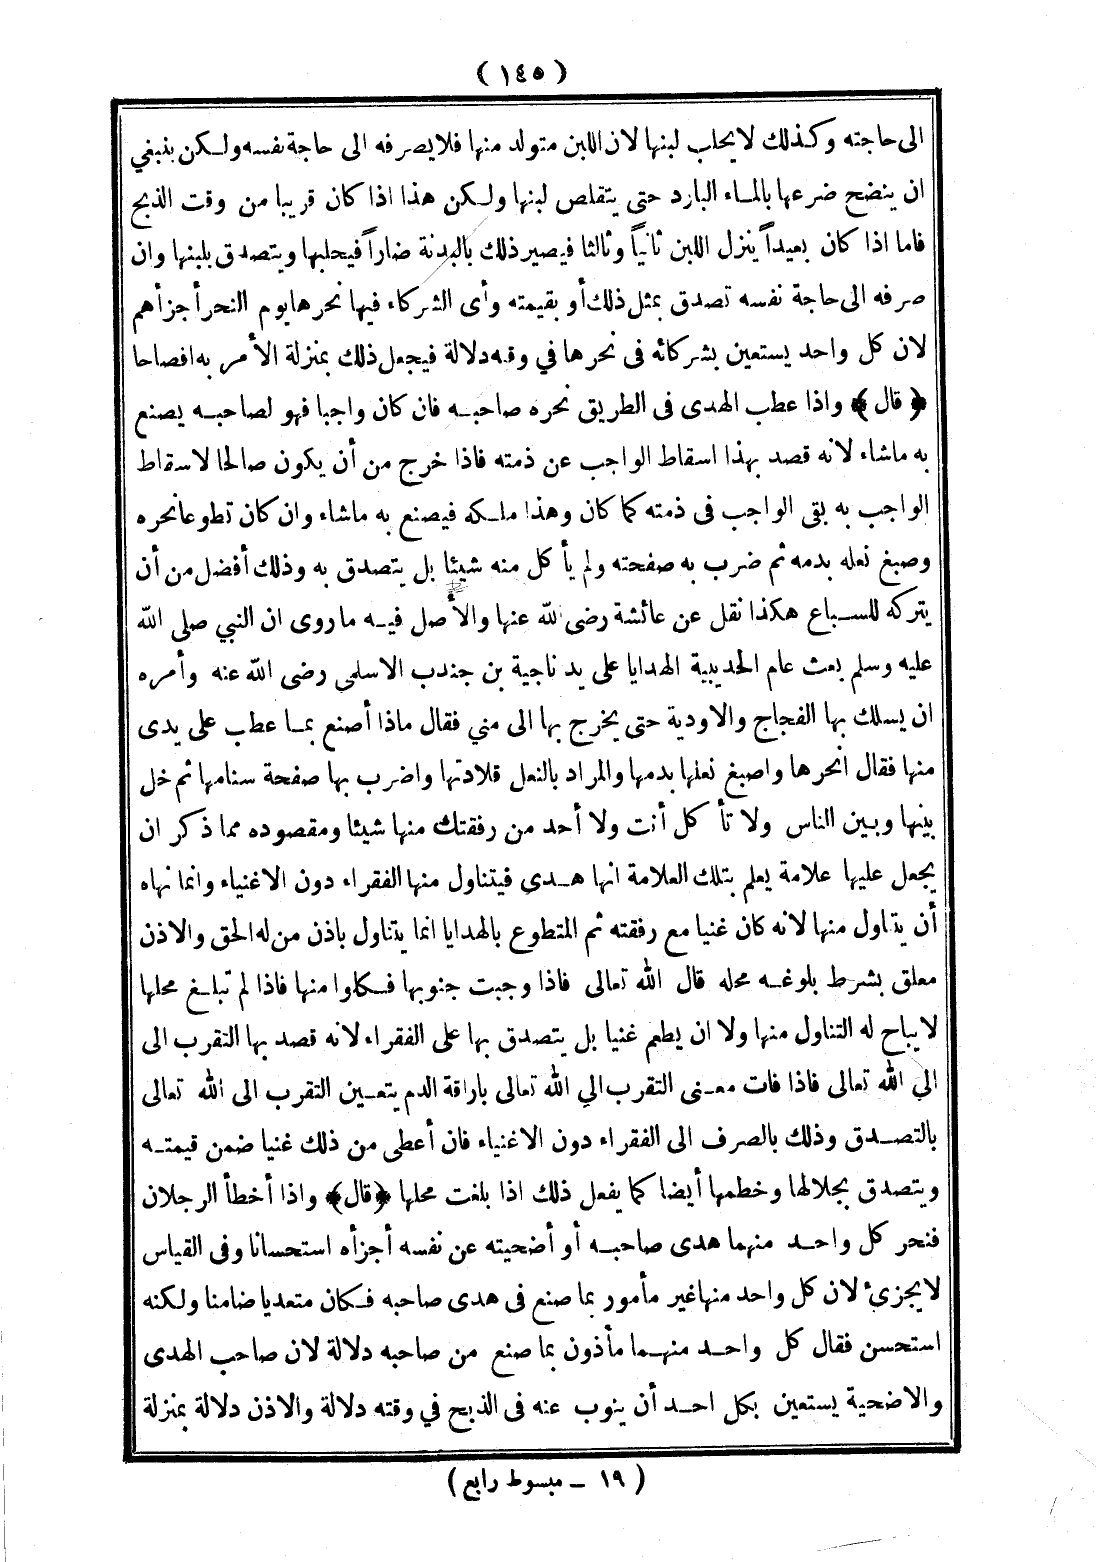 (١٤٥)
الى حاجته وكذلك لايحلب لبنها لان اللبن متولد منها فلايصرفه الى حاجة نفسه ولكن ينبغي
ان ينضح ضرعها بالماء البارد حتى يتقلص لبنها ولكن هذا اذا كان قريبا من وقت الذبح
فاما اذا كان بعيداً ينزل اللبن ثانياً وثالثا فيصير ذلك بالبدنة ضاراً فيحلبها ويتصدق بلبنها وان
صرفه الى حاجة نفسه تصدق بمثل ذلك أو بقيمته وأى الشركاء فيها نحرها يوم النحر أجزأهم
لان كل واحد يستعين بشركائه فى نحرها في وقته دلالة فيجعل ذلك بمنزلة الأمر به افصاحا
﴿قال﴾ واذا عطب الهدى فى الطريق نحره صاحبه فان كان واجبا فهو لصاحبه يصنع
به ماشاء لانه قصد بهذا اسقاط الواجب عن ذمته فاذا خرج من أن يكون صالحا لاسقاط
الواجب به بقى الواجب فى ذمته كما كان وهذا ملكه فيصنع به ماشاء وان كان تطوعا نحره
وصبغ نعله بدمه ثم ضرب به صفحته ولم يأكل منه شيئا بل يتصدق به وذلك أفضل من أن
يتركه للسباع هكذا نقل عن عائشة رضى الله عنها والأصل فيه ماروى ان النبي صلى الله
عليه وسلم بعث عام الحديبية الهدايا على يد ناجية بن جندب الاسلمى رضى الله عنه وأمره
ان يسلك بها الفجاج والاودية حتى يخرج بها الى مني فقال ماذا أصنع بما عطب على يدى
منها فقال انحرها واصبغ نعلها بدمها والمراد بالنعل قلادتها واضرب بها صفحة سنامها ثم خل
بينها وبين الناس ولا تأكل أنت ولا أحد من رفقتك منها شيئا ومقصوده مما ذكر ان
يجعل عليها علامة يعلم بتلك العلامة انها هدى فيتناول منها الفقراء دون الاغنياء وانما نهاه
أن يتناول منها لانه كان غنيا مع رفقته ثم المتطوع بالهدايا انما يتناول باذن من له الحق والاذن
معلق بشرط بلوغه محله قال الله تعالى فاذا وجبت جنوبها فكلوا منها فاذا لم تبلغ محلها
لايباح له التناول منها ولا ان يطعم غنيا بل يتصدق بها على الفقراء لانه قصد بها التقرب الى
الي الله تعالى فاذا فات معنى التقرب الي الله تعالى باراقة الدم يتعين التقرب الى الله تعالى
بالتصدق وذلك بالصرف الى الفقراء دون الاغنياء فان أعطى من ذلك غنيا ضمن قيمته
ويتصدق بجلالها وخطمها أيضا كما يفعل ذلك اذا بلغت محلها ﴿قال﴾ واذا أخطأ الرجلان
فنحر كل واحد منهما هدى صاحبه أو أضحيته عن نفسه أجزأه استحسانا وفى القياس
لايجزئ لان كل واحد منها غير مأمور بما صنع فى هدى صاحبه فكان متعديا ضامنا ولكنه
استحسن فقال كل واحد منهما مأذون بما صنع من صاحبه دلالة لان صاحب الهدى
والاضحية يستعين بكل احد أن ينوب عنه فى الذبح في وقته دلالة والاذن دلالة بمنزلة
(١٩ ــ مبسوط رابع)